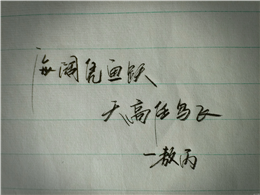 海阔凭鱼跃
天高任鸟飞
一敖丙